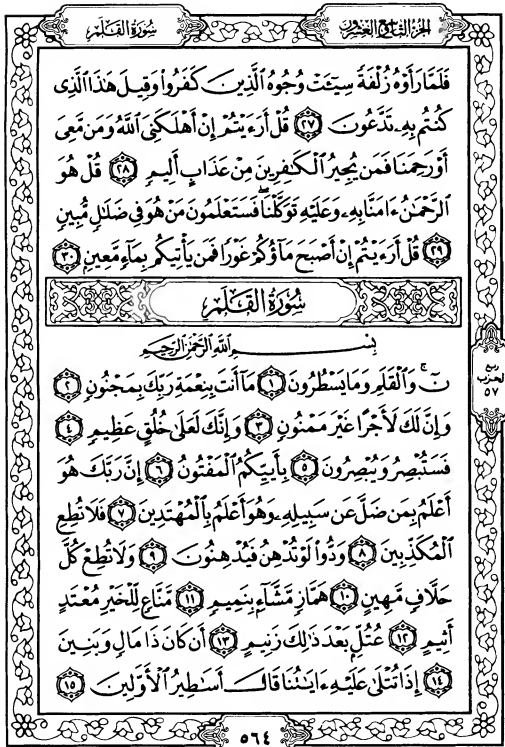 سُورَةُ القَلَمِ
الجزء التاسع والعشرون
فَلَمَّا رَأَوْهُ زُلْفَةً سِيٓـَٔتْ وُجُوهُ ٱلَّذِينَ كَفَرُوا۟ وَقِيلَ هَٰذَا ٱلَّذِى
كُنتُم بِهِۦ تَدَّعُونَ ٢٧ قُلْ أَرَءَيْتُمْ إِنْ أَهْلَكَنِىَ ٱللَّهُ وَمَن مَّعِىَ
أَوْ رَحِمَنَا فَمَن يُجِيرُ ٱلْكَٰفِرِينَ مِنْ عَذَابٍ أَلِيمٍ ٢٨ قُلْ هُوَ
ٱلرَّحْمَٰنُ ءَامَنَّا بِهِۦ وَعَلَيْهِ تَوَكَّلْنَا ۖ فَسَتَعْلَمُونَ مَنْ هُوَ فِى ضَلَٰلٍ مُّبِينٍ
٢٩ قُلْ أَرَءَيْتُمْ إِنْ أَصْبَحَ مَآؤُكُمْ غَوْرًا فَمَن يَأْتِيكُم بِمَآءٍ مَّعِينٍ ٣٠
سُورَةُ القَلَمِ
بِسْمِ ٱللَّهِ ٱلرَّحْمَٰنِ ٱلرَّحِيمِ
نٓ ۚ وَٱلْقَلَمِ وَمَا يَسْطُرُونَ ١ مَآ أَنتَ بِنِعْمَةِ رَبِّكَ بِمَجْنُونٍ ٢
وَإِنَّ لَكَ لَأَجْرًا غَيْرَ مَمْنُونٍ ٣ وَإِنَّكَ لَعَلَىٰ خُلُقٍ عَظِيمٍ ٤
فَسَتُبْصِرُ وَيُبْصِرُونَ ٥ بِأَييِّكُمُ ٱلْمَفْتُونُ ٦ إِنَّ رَبَّكَ هُوَ
أَعْلَمُ بِمَن ضَلَّ عَن سَبِيلِهِۦ وَهُوَ أَعْلَمُ بِٱلْمُهْتَدِينَ ٧ فَلَا تُطِعِ
ٱلْمُكَذِّبِينَ ٨ وَدُّوا۟ لَوْ تُدْهِنُ فَيُدْهِنُونَ ٩ وَلَا تُطِعْ كُلَّ
حَلَّافٍ مَّهِينٍ ١٠ هَمَّازٍ مَّشَّآءٍۭ بِنَمِيمٍ ١١ مَّنَّاعٍ لِّلْخَيْرِ مُعْتَدٍ
أَثِيمٍ ١٢ عُتُلٍّۭ بَعْدَ ذَٰلِكَ زَنِيمٍ ١٣ أَن كَانَ ذَا مَالٍ وَبَنِينَ
١٤ إِذَا تُتْلَىٰ عَلَيْهِ ءَايَٰتُنَا قَالَ أَسَٰطِيرُ ٱلْأَوَّلِينَ ١٥
ربع
الحزب
٥٧
٥٦٤